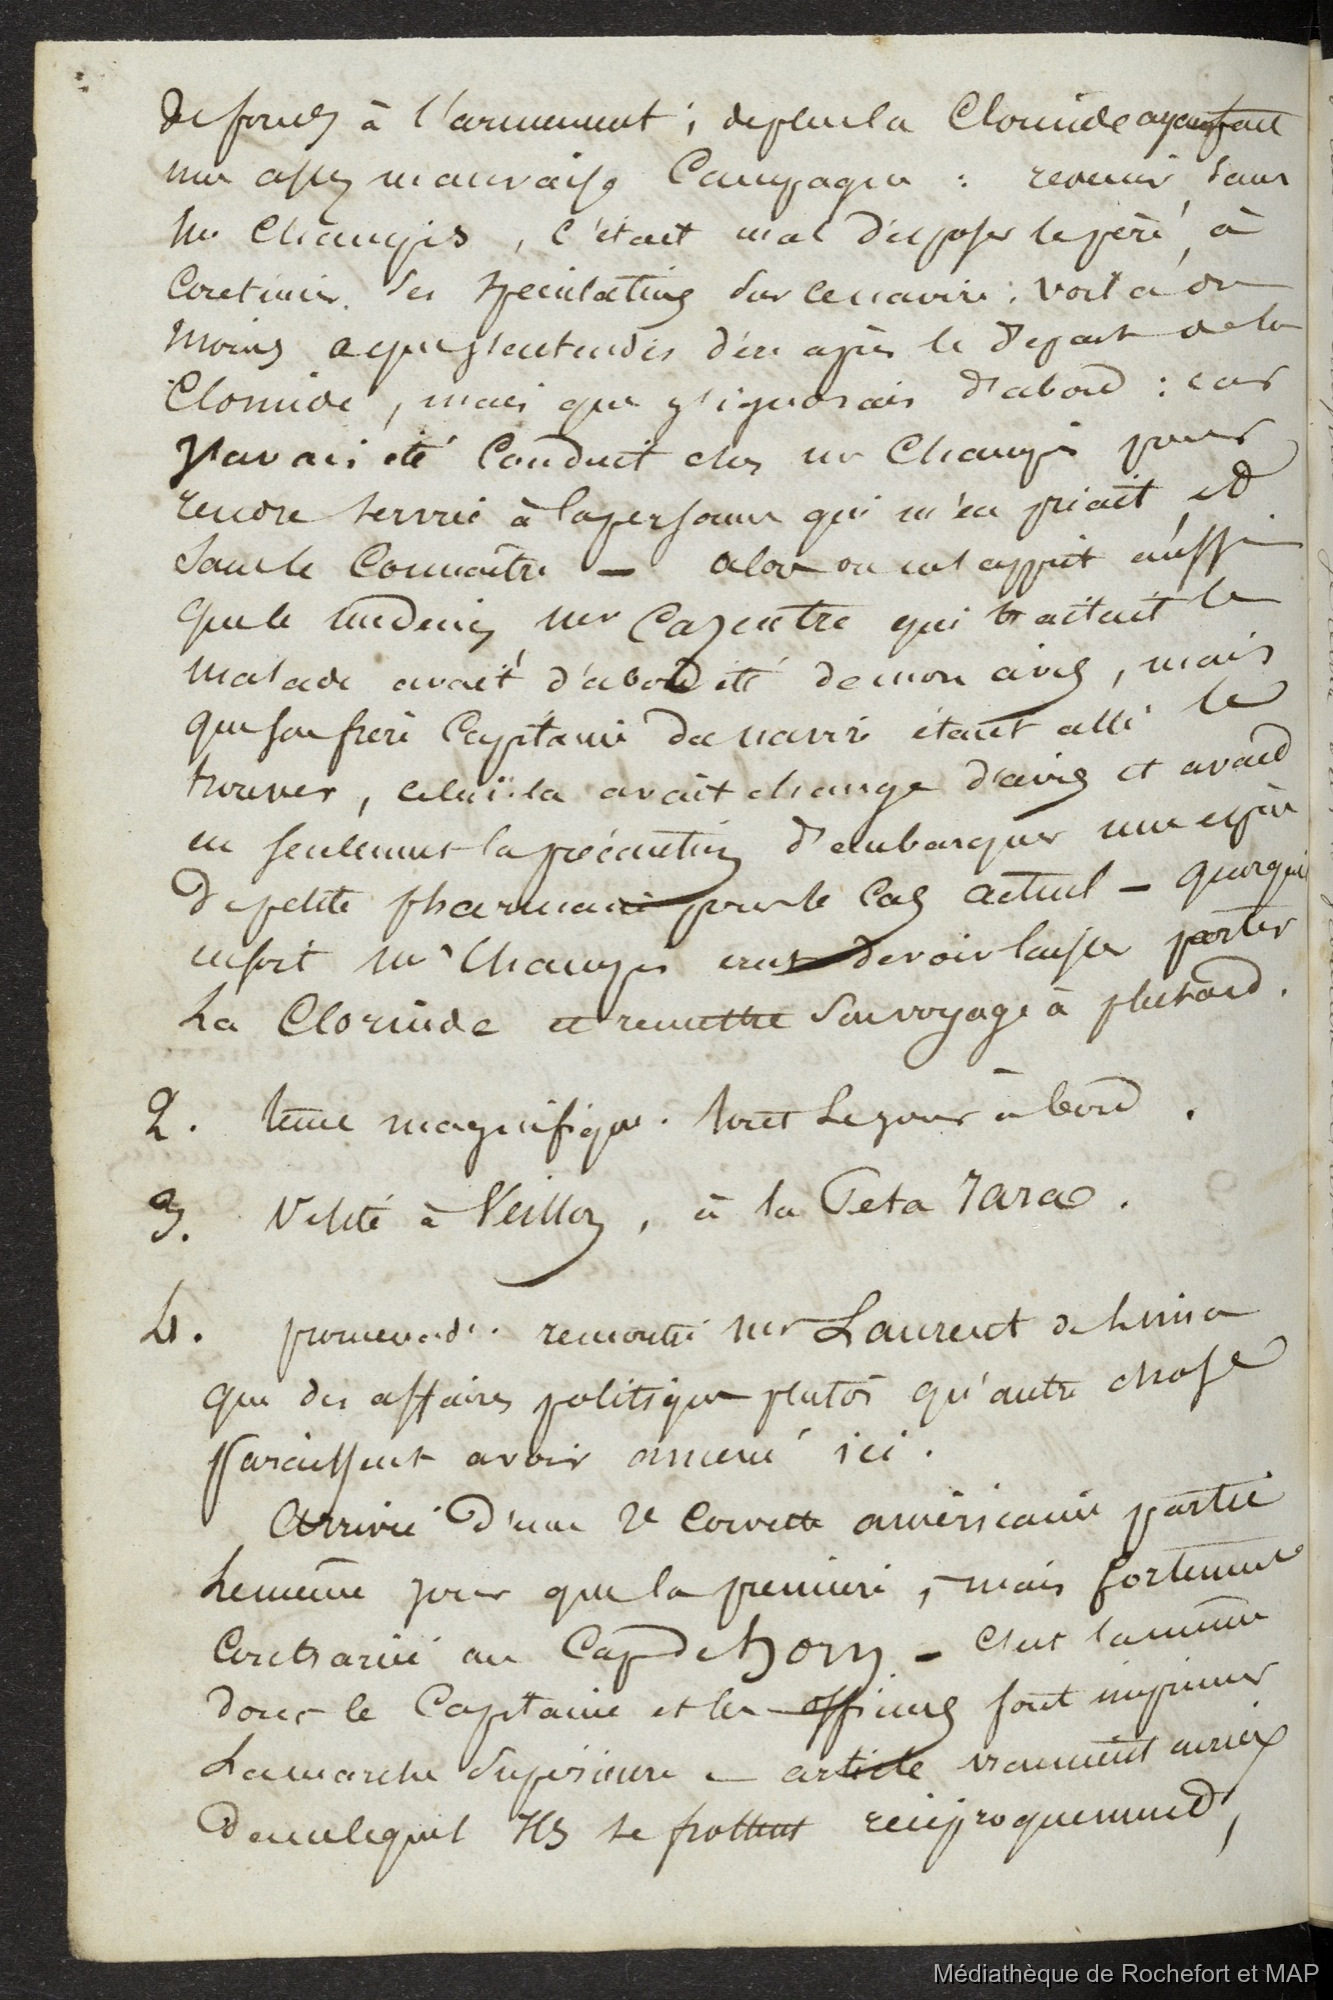 de fonds à l'armement ; de plus la Clorinde ayant fait
une assez mauvaise Campagne : revenir sans
Mr Changis, c'était mal disposer le père à
Continuer ses spéculations sur ce navire ; voilà du
moins ce que j'entendis dire après le départ de la
Clorinde, mais que j'ignorais d'abord : car
J'avais été Conduit chez mr Changis pour
rendre service à la personne qui m'en priait et
sans le Connaître — alors on m'apprit aussi
que le médecin mr Cazentre qui traitait le
malade avait d'abord été de mon avis, mais
que son frère Capitaine du navire étant allé le
trouver, celui-là avait changé d'avis et avait
eu seulement la précaution d'embarquer une espèce
de petite pharmacie pour le Cas actuel — quoiqu'il
en soit mr Changis crut devoir laisser partir
La Clorinde et remettre son voyage à plus tard.
2. tems magnifique. tout le jour à bord.
3. Visite à Veillon, à la Peta Zara.
4. promenade. rencontré mr Laurent de Lima
que des affaires politiques plutôt qu'autre chose
paraissent avoir amené ici.
Arrivée d'une 2e Corvette américaine partie
le même jour que la première, mais fortement
Contrariée au Cap de horn — C'est la même
dont le Capitaine et les officiers font imprimer
La marche Supérieure — article vraiment curieux
dans lequel Ils se frottent réciproquement,
Médiathèque de Rochefort et MAP